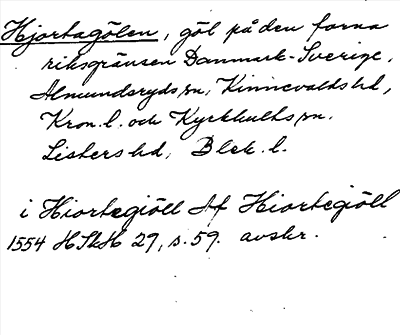 Hjortagölen, göl på den forna
riksgränsen Danmark-Sverige,
Almundsryds sn, Kinnevalds hd,
Kron. l. och Kyrkhults sn.
Listers hd, Blek. l.
i Hiortegiöll Af Hiortegiöll
1554 HSkH 29, s. 59. avskr.